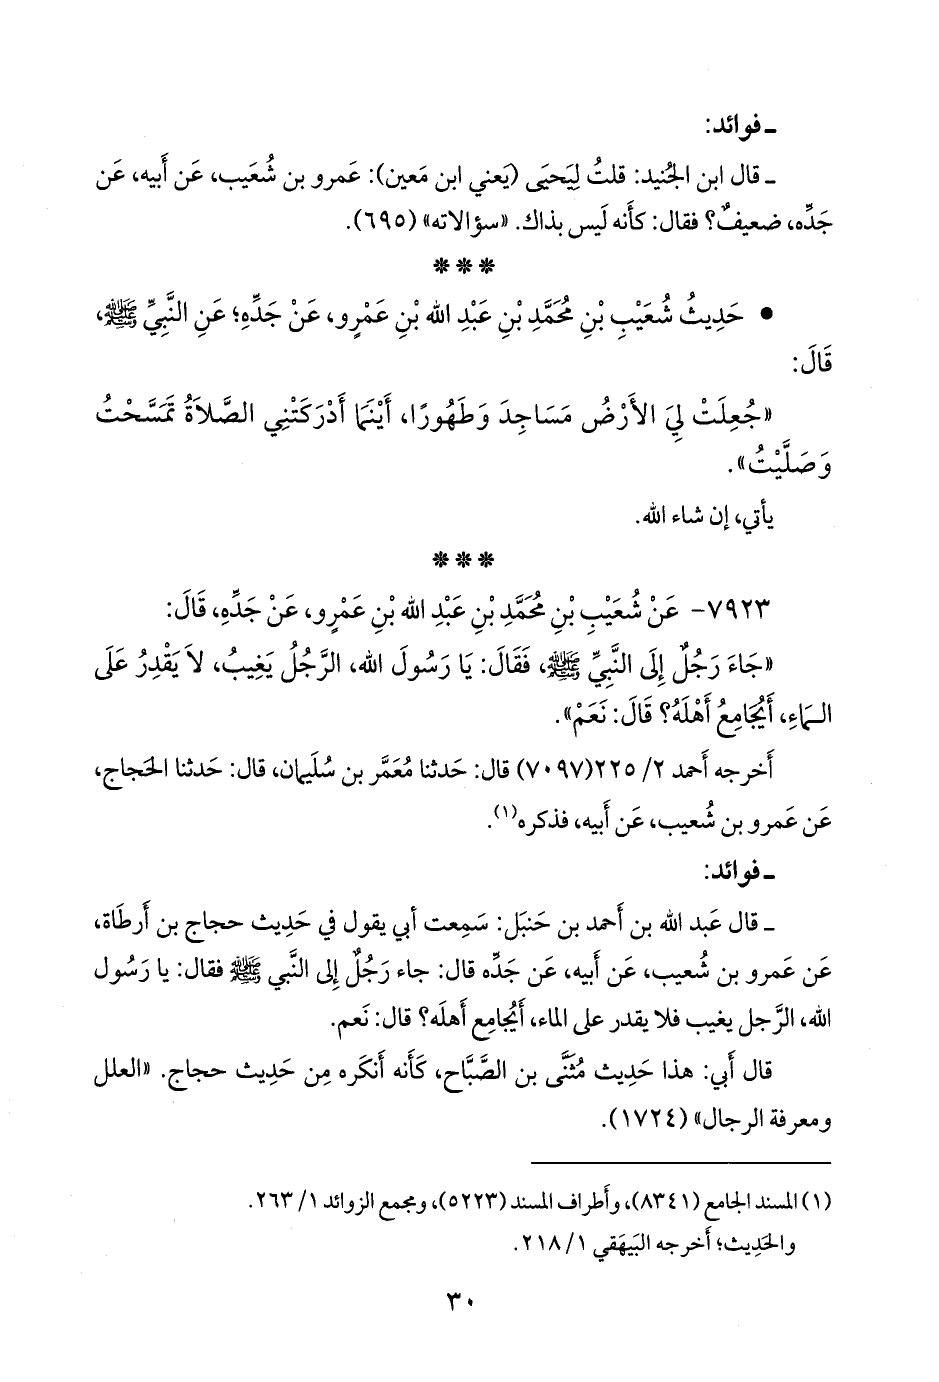 ـ فوائد:
ـ قال ابن الجُنيد: قلتُ لِيَحيَى (يَعني ابن مَعين): عَمرو بن شُعَيب، عَن أَبيه، عَن
جَدِّه، ضعيفٌ؟ فقال: كأَنه لَيس بذاك. «سؤالاته» (٦٩٥).
❊ ❊ ❊
• حَدِيثُ شُعَيْبِ بْنِ مُحَمَّدِ بْنِ عَبْدِ الله بْنِ عَمْرٍو، عَنْ جَدِّهِ؛ عَنِ النَّبِيِّ ﷺ،
قَالَ:
«جُعِلَتْ لِيَ الأَرْضُ مَسَاجِدَ وَطَهُورًا، أَيْنَمَا أَدْرَكَتْنِي الصَّلاَةُ تَمَسَّحْتُ
وَصَلَّيْتُ».
يأتي، إن شاء الله.
❊ ❊ ❊
٧٩٢٣- عَنْ شُعَيْبِ بْنِ مُحَمَّدِ بْنِ عَبْدِ الله بْنِ عَمْرٍو، عَنْ جَدِّهِ، قَالَ:
«جَاءَ رَجُلٌ إِلَى النَّبِيِّ ﷺ، فَقَالَ: يَا رَسُولَ الله، الرَّجُلُ يَغِيبُ، لاَ يَقْدِرُ عَلَى
المَاءِ، أَيُجَامِعُ أَهْلَهُ؟ قَالَ: نَعَمْ».
أَخرجه أَحمد ٢/ ٢٢٥(٧٠٩٧) قال: حَدثنا مُعَمَّر بن سُلَيمان، قال: حَدثنا الحَجاج،
عَن عَمرو بن شُعيب، عَن أَبيه، فذكره(١).
ـ فوائد:
ـ قال عَبد الله بن أَحمد بن حَنبَل: سَمِعت أبي يقول في حَدِيث حجاج بن أَرطَاة،
عَن عَمرو بن شُعيب، عَن أَبيه، عَن جَدِّه قال: جاء رَجُلٌ إلى النَّبي ﷺ فقال: يا رَسُول
الله، الرَّجل يغيب فلا يقدر على الماء، أَيُجامِع أَهلَه؟ قال: نَعم.
قال أَبي: هذا حَدِيث مُثَنَّى بن الصَّبَّاح، كَأَنه أَنكَره مِن حَدِيث حجاج. «العلل
ومعرفة الرجال» (١٧٢٤).
(١) المسند الجامع (٨٣٤١)، وأَطراف المسند (٥٢٢٣)، ومجمع الزوائد ١/ ٢٦٣.
والحَدِيث؛ أَخرجه البَيهَقي ١/ ٢١٨.
٣٠